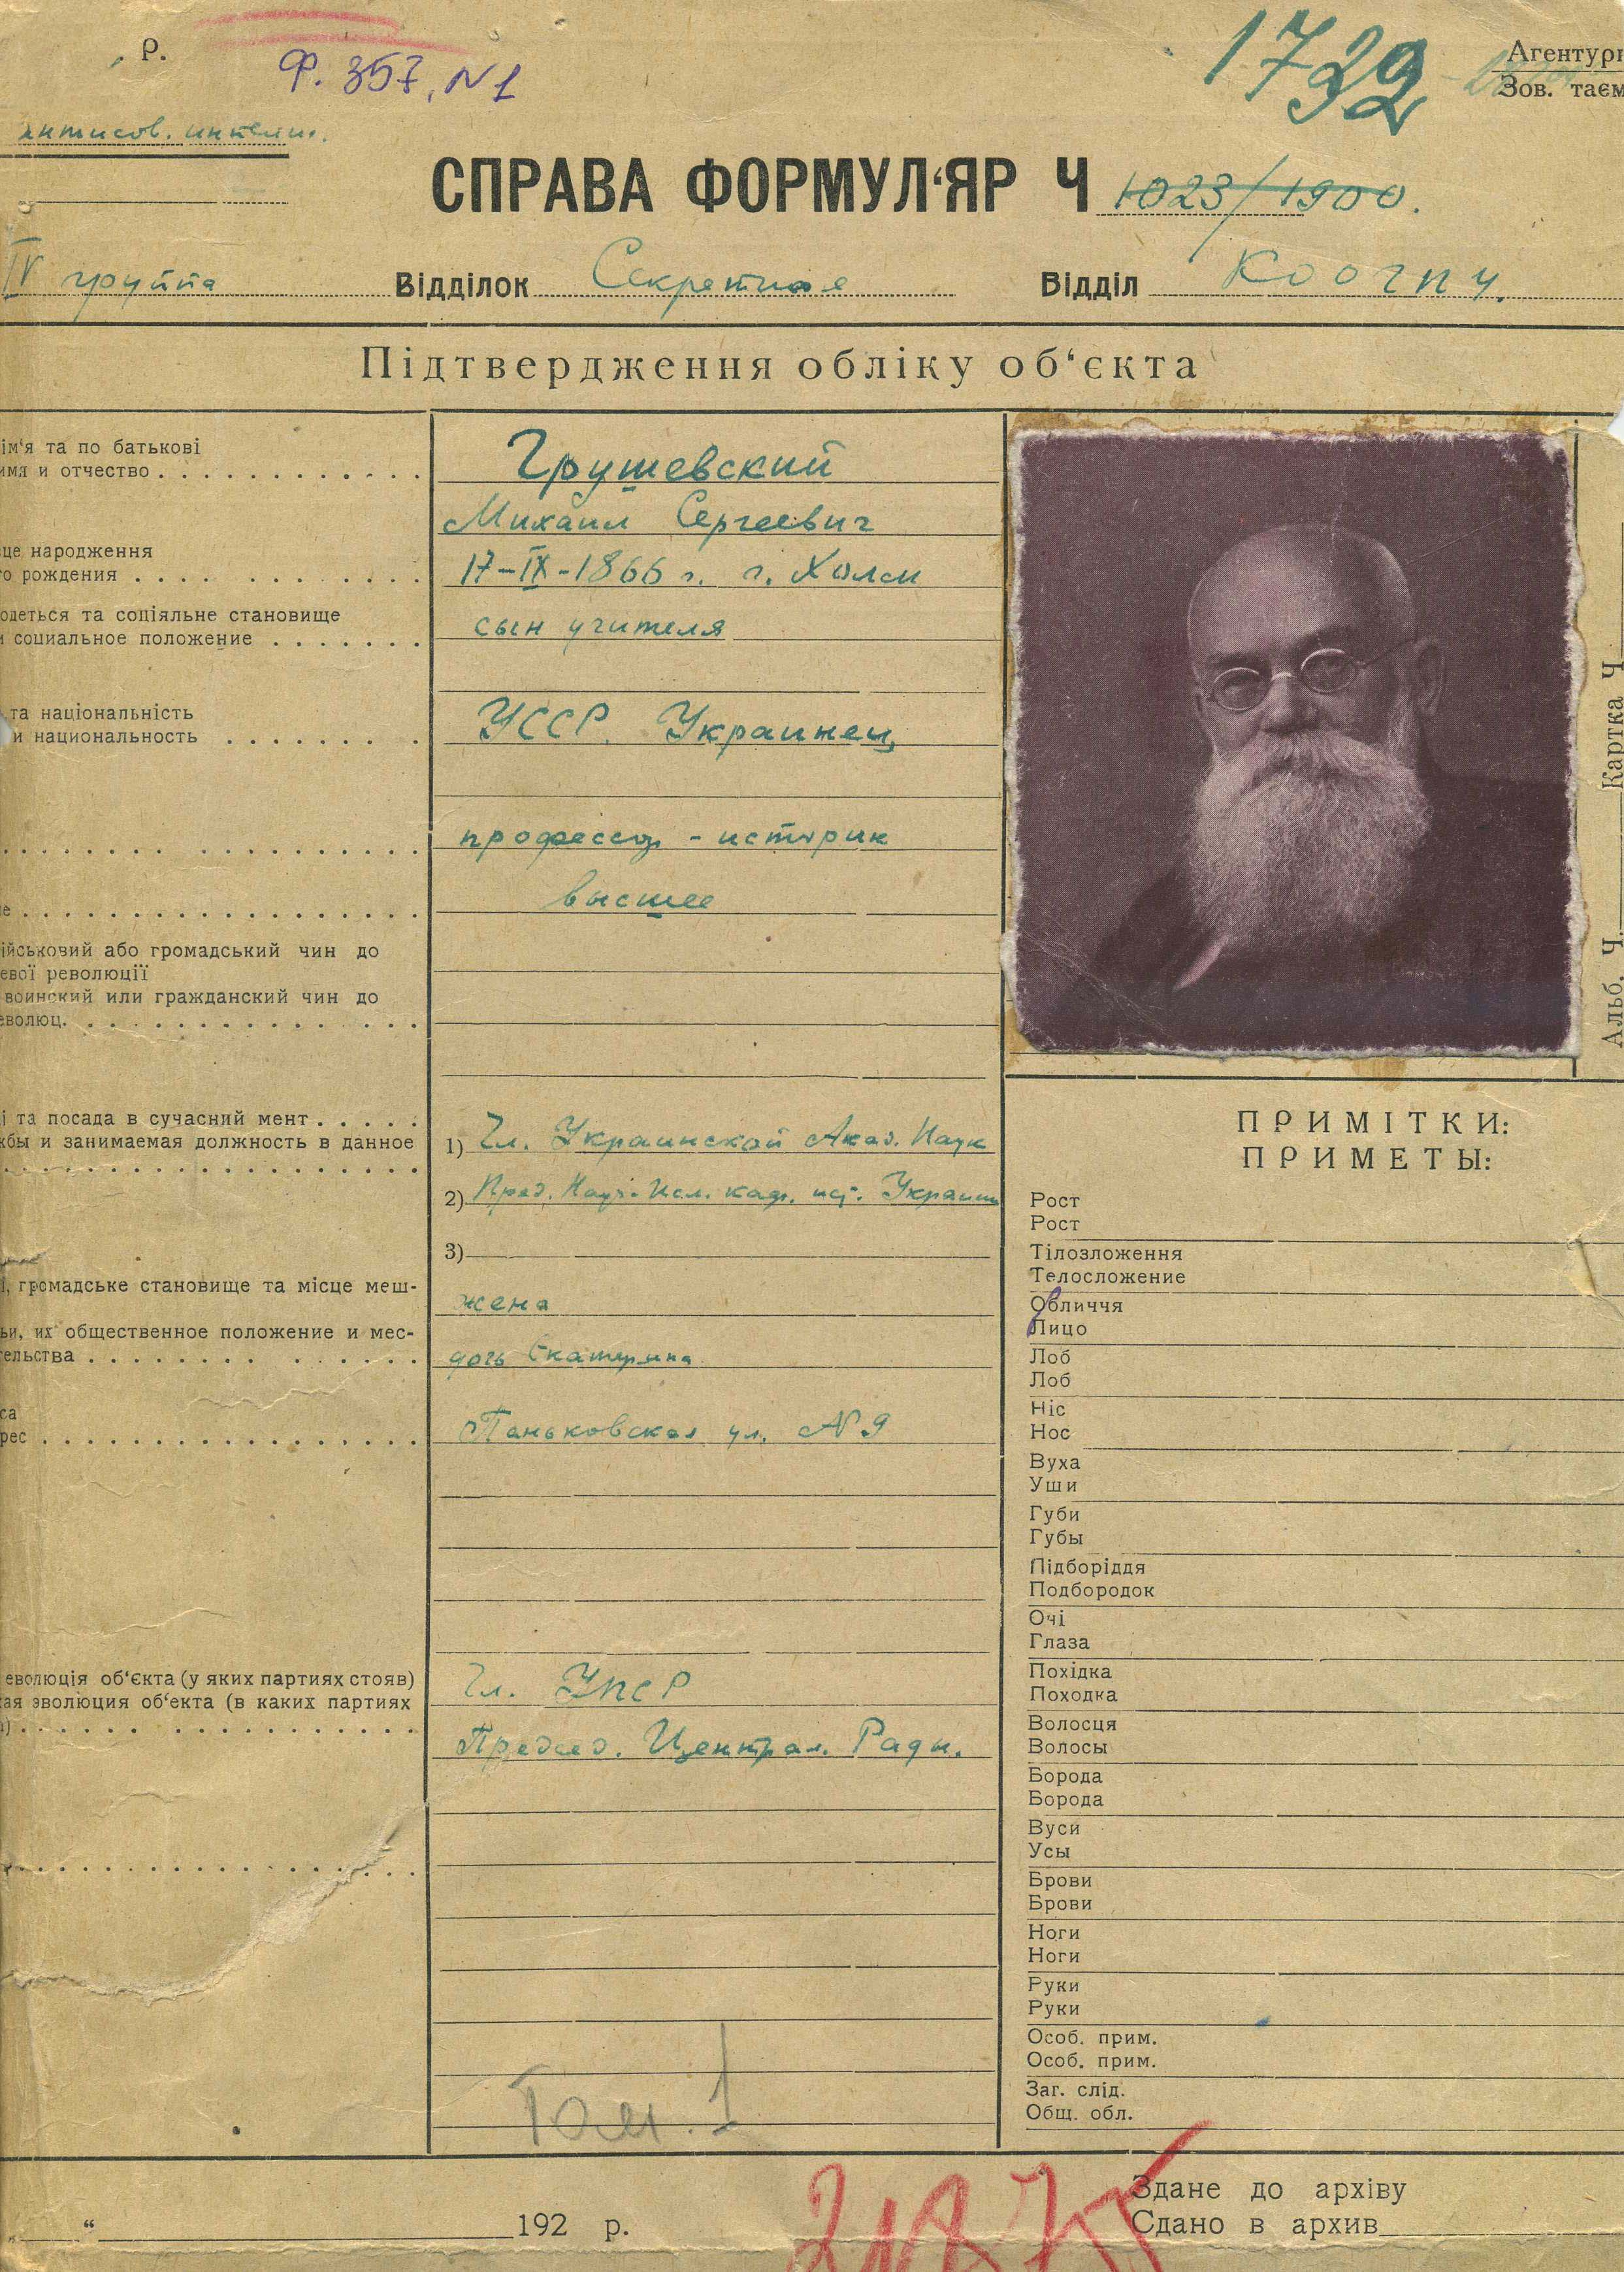 р.
Ф. 357, N 1
1732
Агентурн
Зов. таєм
антисов. интелиг.
СПРАВА ФОРМУЛ‘ЯР Ч 1023/1900.
IV группа Відділок Секретное Відділ КООГПУ.
Підтвердження обліку об‘єкта
ім‘я та по батькові
имя и отчество
Грушевский
Михаил Сергеевич
це народження
го рождения
17-IX-1866 г. г. Холм
одеться та соціяльне становище
и социальное положение
сын учителя
та національність
и национальность
УССР. Украинец
профессор - историк
е
высшее
ійськовий або громадський чин до
евої революції
воинский или гражданский чин до
еволюц.
і та посада в сучасний мент
жбы и занимаемая должность в данное
1) Чл. Украинской Акад. Наук
2) Пред. Науч. Исл. каф. ист. Украины
3)
і, громадське становище та місце меш-
ьи, их общественное положение и мес-
ельства
жена
дочь Екатерина
са
рес
Паньковская ул. № 9
еволюція об‘єкта (у яких партиях стояв)
ая эволюция об‘екта (в каких партиях
Чл. УПСР
Председ. Централ. Рады.
Том. 1
Картка Ч.
Альб. Ч.
ПРИМІТКИ:
ПРИМЕТЫ:
Рост
Рост
Тілозложення
Телосложение
Обличчя
Лицо
Лоб
Лоб
Ніс
Нос
Вуха
Уши
Губи
Губы
Підборіддя
Подбородок
Очі
Глаза
Похідка
Походка
Волосця
Волосы
Борода
Борода
Вуси
Усы
Брови
Брови
Ноги
Ноги
Руки
Руки
Особ. прим.
Особ. прим.
Заг. слід.
Общ. обл.
„ “ 192 р.
Здане до архіву
Сдано в архив